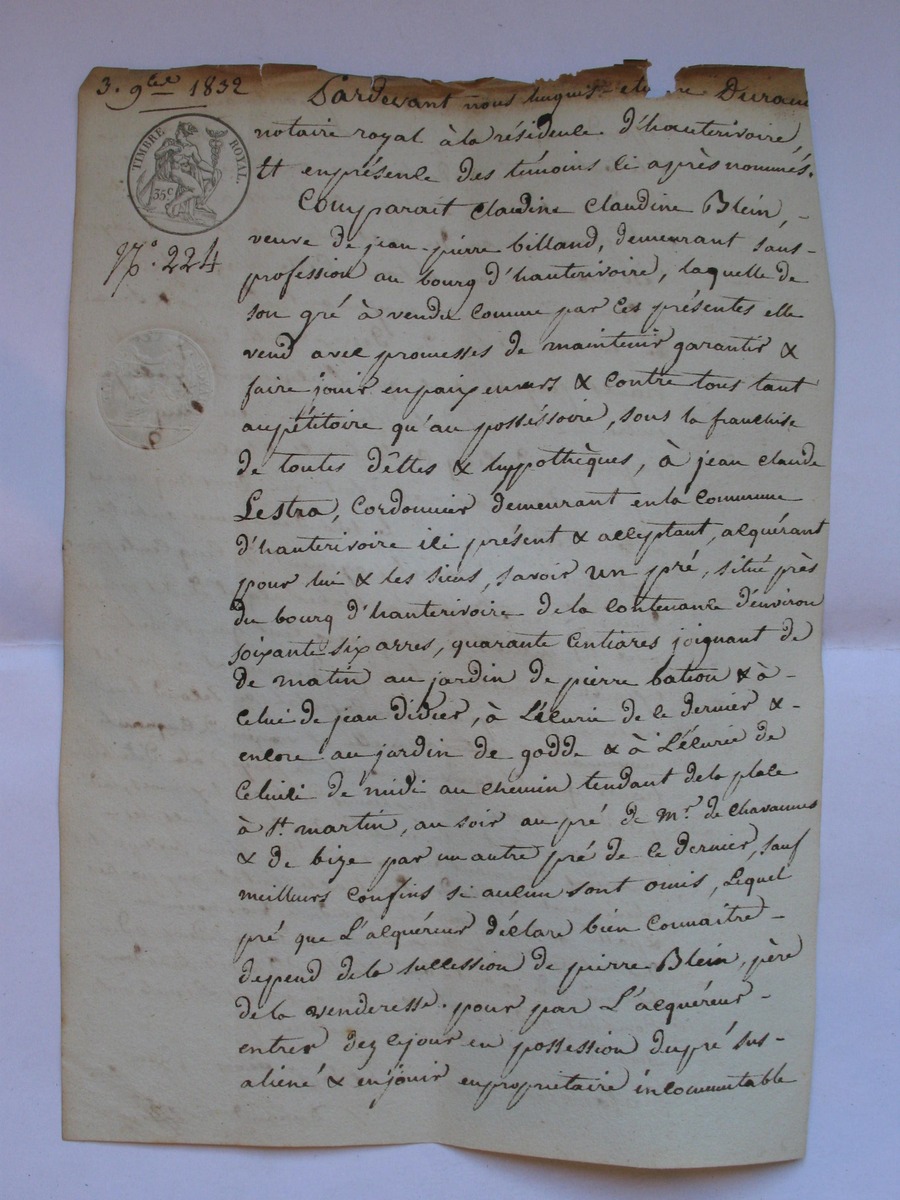 3. 9bre 1832
TIMBRE ROYAL.
35c
N.° 224
Pardevant nous
notaire royal à la résidence d'hauterivoire,
Et en présence des témoins ci après nommés.
Comparait Claudine Claudine Blein,
veuve de jean-pierre billand, demeurant sans
profession au bourg d'hauterivoire, laquelle de
son gré à vendu comme par ces présentes elle
vend avec promesses de maintenir garantir &
faire jouir en paix envers & contre tous tant
au pétitoire qu'au posséssoire, sous la franchise
de toutes déttes & hyppothèques, à jean claude
Lestra, Cordonnier demeurant en la Commune
d'hauterivoire ici présent & acceptant, acquérant
pour lui & les siens, savoir un pré, situé près
du bourg d'hauterivoire de la Contenance d'environ
soixante six arres, quarante Centiares joignant de
de matin au jardin de pierre bation & à
celui de jean didier, à L'écurie de ce dernier &
encore au jardin de godde & à L'écurie de
Celuici de midi au chemin tendant de la place
à St. martin, au soir au pré de Mr. de Chavannes
& de bize par un autre pré de ce dernier, sauf
meilleurs Confins si aucun sont omis, Lequel
pré que L'acquéreur déclare bien Connaitre
dépend de la succession de pierre Blein, père
de la venderesse. pour par L'acquéreur
entrer dez cejour en possession dupré sus-
aliéné & enjouir en propriétaire incommutable